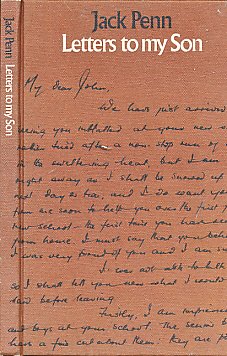 Jack Penn
Letters to my Son
Jack Penn Letters to my Son
My dear John,
We have just arrived
seeing you installed at your new s
rather tired after a non-stop run of
in the sweltering heat, but I am
right away as I shall be snowed u
next day or two, and I do want yo
from me soon to help you over the first f
new school - the first time you have
from home. I must say that your beh
I was very proud of you and I am su
I was not able to
so I shall tell you now what I would
said before leaving.
Firstly, I am impressed
and boys at your school. The seniors
have a fine cut about them. They are p